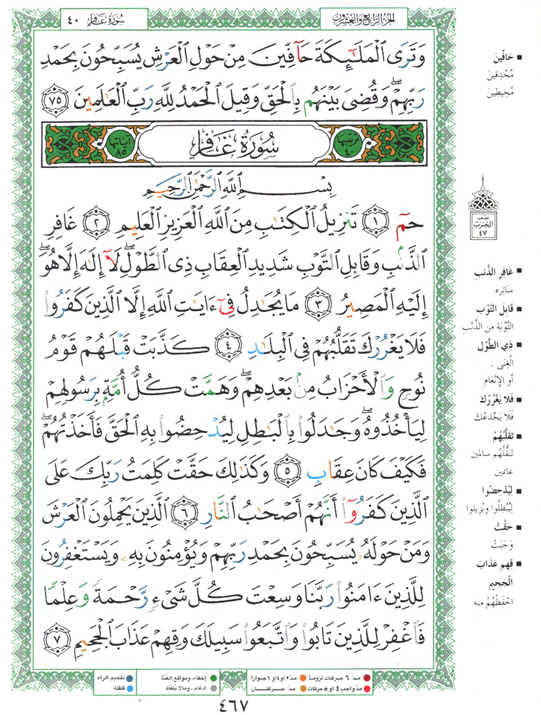 سُورَةُ غَافِر ٤٠
الجزء الرابع والعشرون
وَتَرَى ٱلْمَلَـٰٓئِكَةَ حَآفِّينَ مِنْ حَوْلِ ٱلْعَرْشِ يُسَبِّحُونَ بِحَمْدِ
رَبِّهِمْ ۖ وَقُضِىَ بَيْنَهُم بِٱلْحَقِّ وَقِيلَ ٱلْحَمْدُ لِلَّهِ رَبِّ ٱلْعَـٰلَمِينَ ٧٥
ترتيبها ٤٠ سُورَةُ غَافِرٍ آياتها ٨٥
بِسْمِ ٱللَّهِ ٱلرَّحْمَـٰنِ ٱلرَّحِيمِ
حمٓ ١ تَنزِيلُ ٱلْكِتَـٰبِ مِنَ ٱللَّهِ ٱلْعَزِيزِ ٱلْعَلِيمِ ٢ غَافِرِ
ٱلذَّنۢبِ وَقَابِلِ ٱلتَّوْبِ شَدِيدِ ٱلْعِقَابِ ذِى ٱلطَّوْلِ ۖ لَآ إِلَـٰهَ إِلَّا هُوَ ۖ
إِلَيْهِ ٱلْمَصِيرُ ٣ مَا يُجَـٰدِلُ فِىٓ ءَايَـٰتِ ٱللَّهِ إِلَّا ٱلَّذِينَ كَفَرُوا۟
فَلَا يَغْرُرْكَ تَقَلُّبُهُمْ فِى ٱلْبِلَـٰدِ ٤ كَذَّبَتْ قَبْلَهُمْ قَوْمُ
نُوحٍ وَٱلْأَحْزَابُ مِنۢ بَعْدِهِمْ ۖ وَهَمَّتْ كُلُّ أُمَّةٍۭ بِرَسُولِهِمْ
لِيَأْخُذُوهُ ۖ وَجَـٰدَلُوا۟ بِٱلْبَـٰطِلِ لِيُدْحِضُوا۟ بِهِ ٱلْحَقَّ فَأَخَذْتُهُمْ ۖ
فَكَيْفَ كَانَ عِقَابِ ٥ وَكَذَٰلِكَ حَقَّتْ كَلِمَتُ رَبِّكَ عَلَى
ٱلَّذِينَ كَفَرُوٓا۟ أَنَّهُمْ أَصْحَـٰبُ ٱلنَّارِ ٦ ٱلَّذِينَ يَحْمِلُونَ ٱلْعَرْشَ
وَمَنْ حَوْلَهُۥ يُسَبِّحُونَ بِحَمْدِ رَبِّهِمْ وَيُؤْمِنُونَ بِهِۦ وَيَسْتَغْفِرُونَ
لِلَّذِينَ ءَامَنُوا۟ رَبَّنَا وَسِعْتَ كُلَّ شَىْءٍ رَّحْمَةً وَعِلْمًا
فَٱغْفِرْ لِلَّذِينَ تَابُوا۟ وَٱتَّبَعُوا۟ سَبِيلَكَ وَقِهِمْ عَذَابَ ٱلْجَحِيمِ ٧
حَافِّينَ
مُحْدِقِينَ
مُحِيطِينَ
نصف
الحزب
٤٧
غَافِرِ الذَّنبِ
سَاتِرِهِ
قَابِلِ التَّوْبِ
التَّوْبَةِ مِنَ الذَّنْبِ
ذِي الطَّوْلِ
الغِنَى
أو الإنعام
فَلَا يَغْرُرْكَ
فَلَا يَخْدَعْكَ
تَقَلُّبُهُمْ
تَنَقُّلُهُم سالمين
غانمين
لِيُدْحِضُوا
لِيُبْطِلُوا ويُزيلوا
حَقَّتْ
وَجَبَتْ
قِهِمْ عَذَابَ
الْجَحِيمِ
احْفَظْهُمْ منه
مدّ ٦ حركات لزوماً
مدّ ٢ أو ٤ أو ٦ جوازاً
إخفاء، ومواقع الغنّة
تفخيم الراء
مدّ واجب ٤ أو ٥ حركات
مدّ حركتان
إدغام، ومالا يُلفظ
قلقلة
٤٦٧